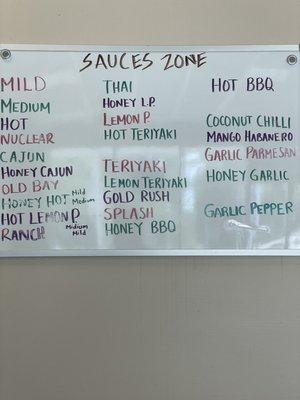 SAUCES ZONE
MILD
MEDIUM
HOT
NUCLEAR
CAJUN
HONEY CAJUN
OLD BAY
HONEY HOT Mild Medium
HOT LEMON P.
RANCH Midium Mild
THAI
HONEY L.P.
LEMON P.
HOT TERIYAKI
TERIYAKI
LEMON TERIYAKI
GOLD RUSH
SPLASH
HONEY BBQ
HOT BBQ
COCONUT CHILLI
MANGO HABANERO
GARLIC PARMESAN
HONEY GARLIC
GARLIC PEPPER